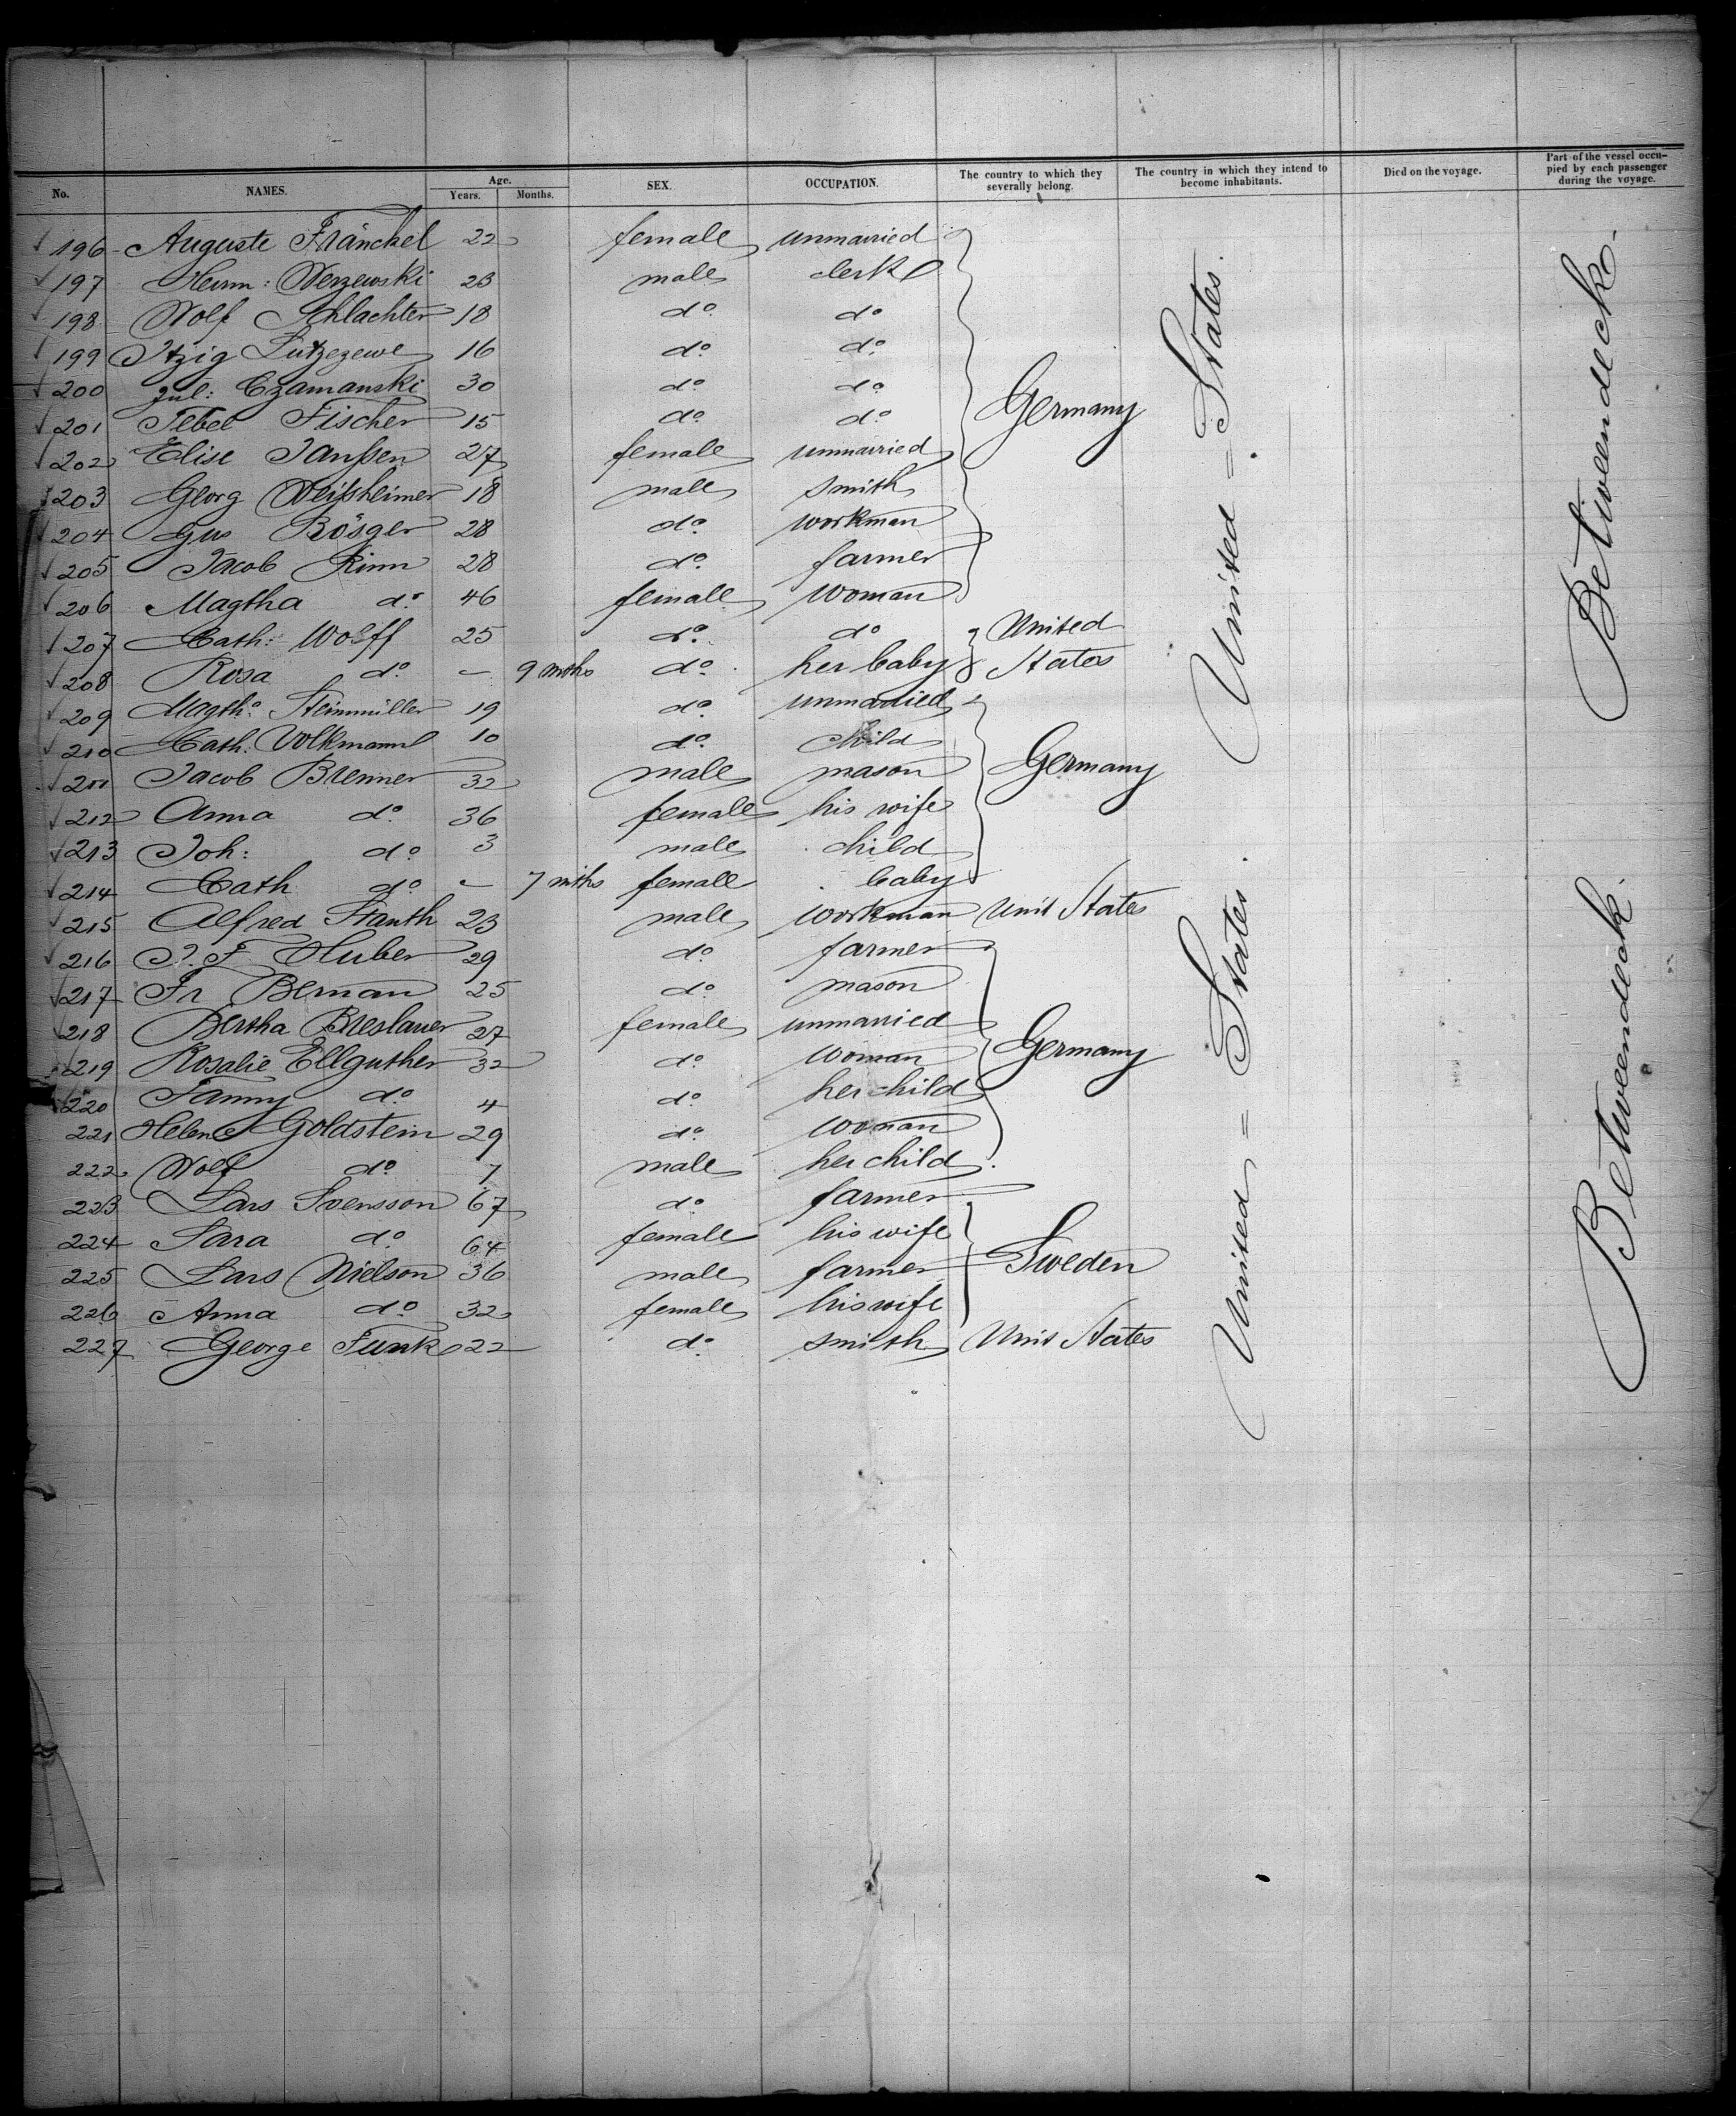 No. NAMES. Age. Years. Months. SEX. OCCUPATION. The country to which they severally belong. The country in which they intend to become inhabitants. Died on the voyage. Part of the vessel occu-pied by each passenger during the voyage.
196 Auguste Fränckel 22 female unmarried
197 Herm: Werzewski 23 male clerk
198 Wolf Schlachter 18 do do
199 Itzig Lutzezewe 16 do do
200 Jul: Czamanski 30 do do
201 Tebel Fischer 15 do do Germany
202 Elise Janssen 27 female unmarried
203 Georg Weissheimer 18 male smith
204 Gus Bösger 28 do workman
205 Jacob Rinn 28 do farmer
206 Magtha do 46 female woman
207 Cath: Wolff 25 do do United
208 Rosa do – 9 mths do her baby States
209 Magth: Steinmüller 19 do unmarried
210 Cath: Volkmann 10 do child
211 Jacob Brenner 32 male mason Germany
212 Anna do 36 female his wife
213 Joh: do 3 male child
214 Cath do – 7 mths female baby
215 Alfred Stauth 23 male workman Unit States
216 J. F Huber 29 do farmer
217 Fr Bernan 25 do mason
218 Bertha Breslauer 27 female unmarried
219 Rosalie Ellguther 32 do woman Germany
220 Fanny do 4 do her child
221 Helene Goldstein 29 do woman
222 Wolf do 7 male her child
223 Lars Svensson 67 do farmer
224 Sara do 64 female his wife
225 Lars Nielson 36 male farmer Sweden
226 Anna do 32 female his wife
227 George Funk 22 do smith Unit States
United = States.
United = States.
Betweendeck.
Betweendeck.